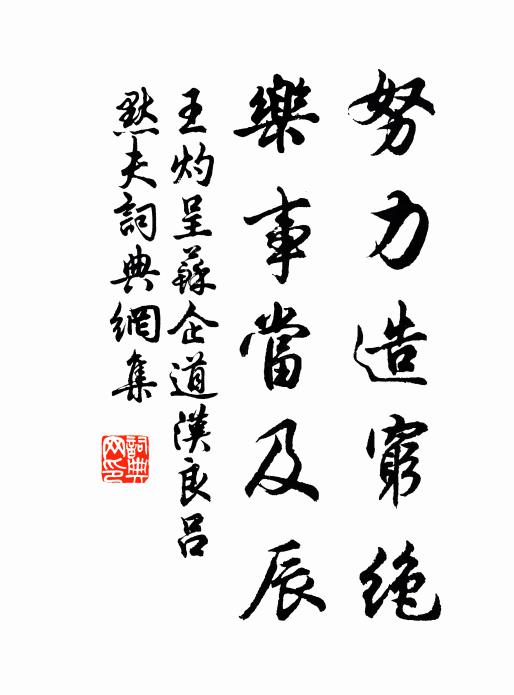 努力造窮絶
樂事當及辰
王灼呈蘇企道漢良呂
默夫詞典網集
詞典網印